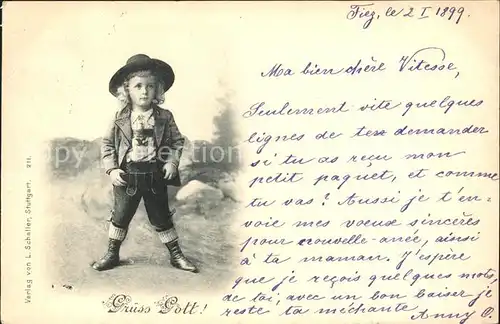 Fiez, le 2 I 1899.
Ma bien chère Vitesse,
Seulement vite quelques
lignes de te demander
si tu as reçu mon
petit paquet, et comme
tu vas? Aussi je t'en-
voie mes voeux sincères
pour nouvelle-anée, ainsi
à ta maman. J'espère
que je reçois quelques mots,
de toi, avec un bon baiser je
reste ta méchante Anny O.
Gruss Gott!
Verlag von L. Schaller, Stuttgart. 211.